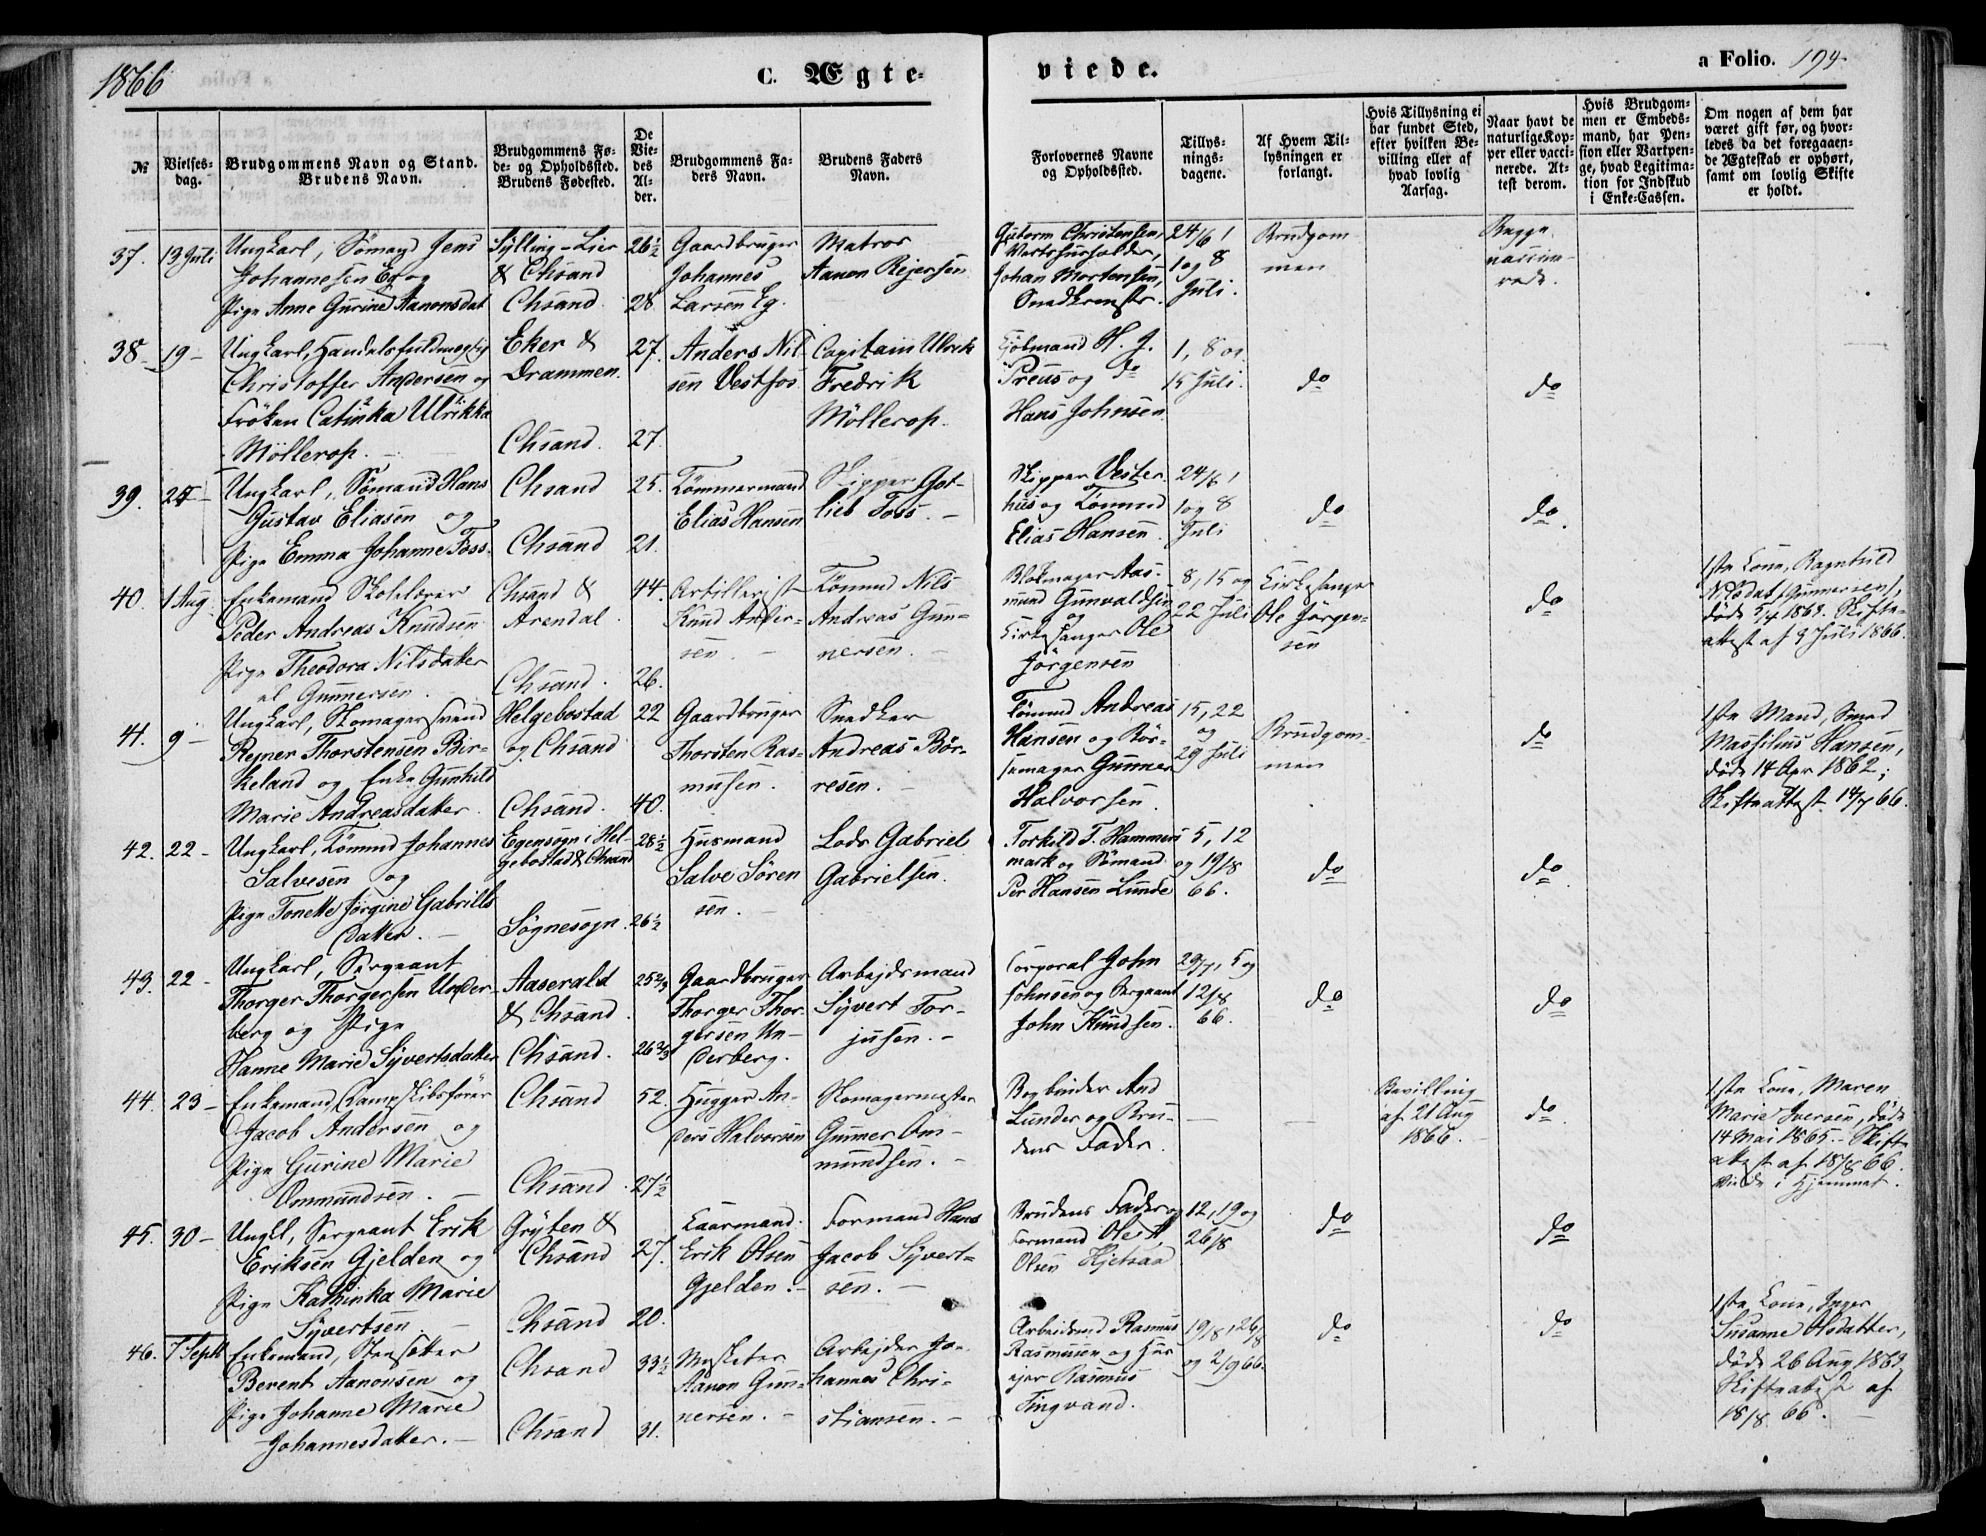 1866
C. Ægte-
viede.
a Folio. 194
№
Vielses-
dag.
Brudgommens Navn og Stand.
Brudens Navn.
Brudgommens Fø-
de- og Opholdssted.
Brudens Fødested.
De
Vie-
des
Al-
der.
Brudgommens Fa-
ders Navn.
Brudens Faders
Navn.
Forlovernes Navne
og Opholdssted.
Tillys-
nings-
dagene.
Af Hvem Til-
lysningen er
forlangt.
Hvis Tillysning ei
har fundet Sted,
efter hvilken Be-
villing eller af
hvad lovlig
Aarsag.
Naar havt de
naturlige Kop-
per eller vacci-
nerede. At-
test derom.
Hvis Brudgom-
men er Embeds-
mand, har Pen-
sion eller Vartpen-
ge, hvad Legitima-
tion for Indskud
i Enke-Cassen.
Om nogen af dem har
været gift før, og hvor-
ledes da det foregaaen-
de Ægteskab er ophørt,
samt om lovlig Skifte
er holdt.
37. 13 Juli
Ungkarl, Sømand Jens
Johannesen Eg og
Pige Anne Gurine Aanonsdat
Sylling - Lier
& Chsand
Chsand.
26½
28
Gaardbruger
Johannes
Larsen Eg.
Matros
Aanon Rejersen
Guttorm Christensen,
Vertshusholder,
Johan Mortensen,
Snedkermstr.
24/6,
1 og 8
Juli.
Brudgom-
men
Begge
vaccine-
rede.
38. 19 -
Ungkarl, Handelsfuldmægtig
Christoffer Andersen og
Frøken Catinka Ulrikka
Möllerop.
Eker &
Drammen.
Chsand.
27.
27.
Anders Nil-
sen Vestfos
Capitain Ulrik
Fredrik
Möllerop.
Kjøbmand H. J.
Preus og do
Hans Johnsen
1, 8 og
15 Juli.
do
do
39. 25 -
Ungkarl, Sømand Hans
Gustav Eliasen og
Pige Emma Johanne Foss.
Chsand
Chsand
25.
21.
Tömmermand
Elias Hansen
Skipper Got-
lieb Foss. -
Skipper Vester-
hus og Tömmd
Elias Hansen.
24/6,
1 og 8
Juli
do
do.
40. 1 Aug.
Enkemand Skolelærer
Peder Andreas Knudsen
Pige Theodora Nilsdatter
el Gunnersen.
Chsand &
Arendal.
Chsand.
44.
26.
Artillerist
Knud Ander-
sen. -
Tömmd Nils
Andreas Gun-
nersen. -
Blokmager Aas-
mund Gunvaldsen
og
Kirkesanger Ole
Jörgensen
8, 15 og
22 Juli
Kirkesanger
Ole Jörgen-
sen
do
1ste Kone, Ragnhild
Nilsdat (Gunnersen),
døde 5/4 1863. Skifte-
attest af 9 Juli 1866.
41. 9 -
Ungkarl, Skomagersvend
Rejner Thorstensen Bir-
keland og Enke Gunhild
Marie Andreasdatter.
Helgebostad
og Chsand
Chsand.
22
40.
Gaardbruger
Thorsten Ras-
musen.
Snedker
Andreas Bör-
resen. -
Tömmd Andreas
Hansen og Bös-
semager Gunner
Halvorsen
15, 22
og
29 Juli
Brudgom-
men
do
1ste Mand, Smed
Massilius Hansen,
døde 14 Apr 1862;
Skifteattest 14/7 66.
42. 22 -
Ungkarl, Tömmd Johannes
Salvesen og
Pige Tonette Jörgine Gabriels
datter. -
Egensogn i Hel-
gebostad & Chsand
Søgnesogn.
28½
26½
Husmand
Salve Sören
sen. -
Lods Gabriel
Gabrielsen.
Torkild T. Hammers
mark og Sømand
Per Hansen Lunde
5, 12
og 19/8
66.
do
do.
43. 22 -
Ungkarl, Sergeant
Thorger Thorgersen Under-
berg og Pige
Hanne Marie Syvertsdatter
Aaserald
& Chsand.
Chsand.
25⅔
26⅔
Gaardbruger
Thorger Thor-
gersen Un-
derberg.
Arbejdsmand
Syvert Tor-
jusen. -
Corporal John
Johnsen og Sergeant
John Knudsen.
29/7, 5 og
12/8
66.
do
do
44. 23 -
Enkemand, Dampskibsfører
Jacob Andersen og
Pige Gurine Marie
Ommundsen. -
Chsand
Chsand.
52.
27½
Hugger An-
ders Halvorsen
Skomagermester
Gunner Om-
mundsen. -
Bogbinder And
Lunder og Bru-
dens Fader.
Bevilling
af 21 Aug
1866. -
do.
1ste Kone, Maren
Marie Iversen, døde
14 Mai 1865. Skifte-
attest af 18/8 66.
Viede i Hjemmet.
45. 30 -
Ungkl, Sergeant Erik
Eriksen Gjelden og
Pige Kathinka Marie
Syvertsen. -
Gryten &
Chsand
Chsand
27.
20.
Erik Olsen
Gjelden. -
Formand Hans
Jacob Syvert-
sen. -
Brudens Fader og
Formand Ole
Olsen Hjetsaa
12, 19 og
26/8
do
do
46. 7 Septb
Enkemand, Stensætter
Berent Aanonsen og
Pige Johanne Marie
Johannesdatter. -
Chsand
Chsand
33½
31.
Musketer
Aanon Gun-
nersen. -
Arbejder Jo-
hannes Chri-
stiansen. -
Arbeidsmd Rasmus
Rasmussen og Hus
ejer Rasmus
Tingvand.
19/8, 26/8
og 2/9 66.
do
do
1ste Kone, Inger
Susanne Olsdatter,
døde 26 Aug 1863,
Skifteattest af
18/8 66. -